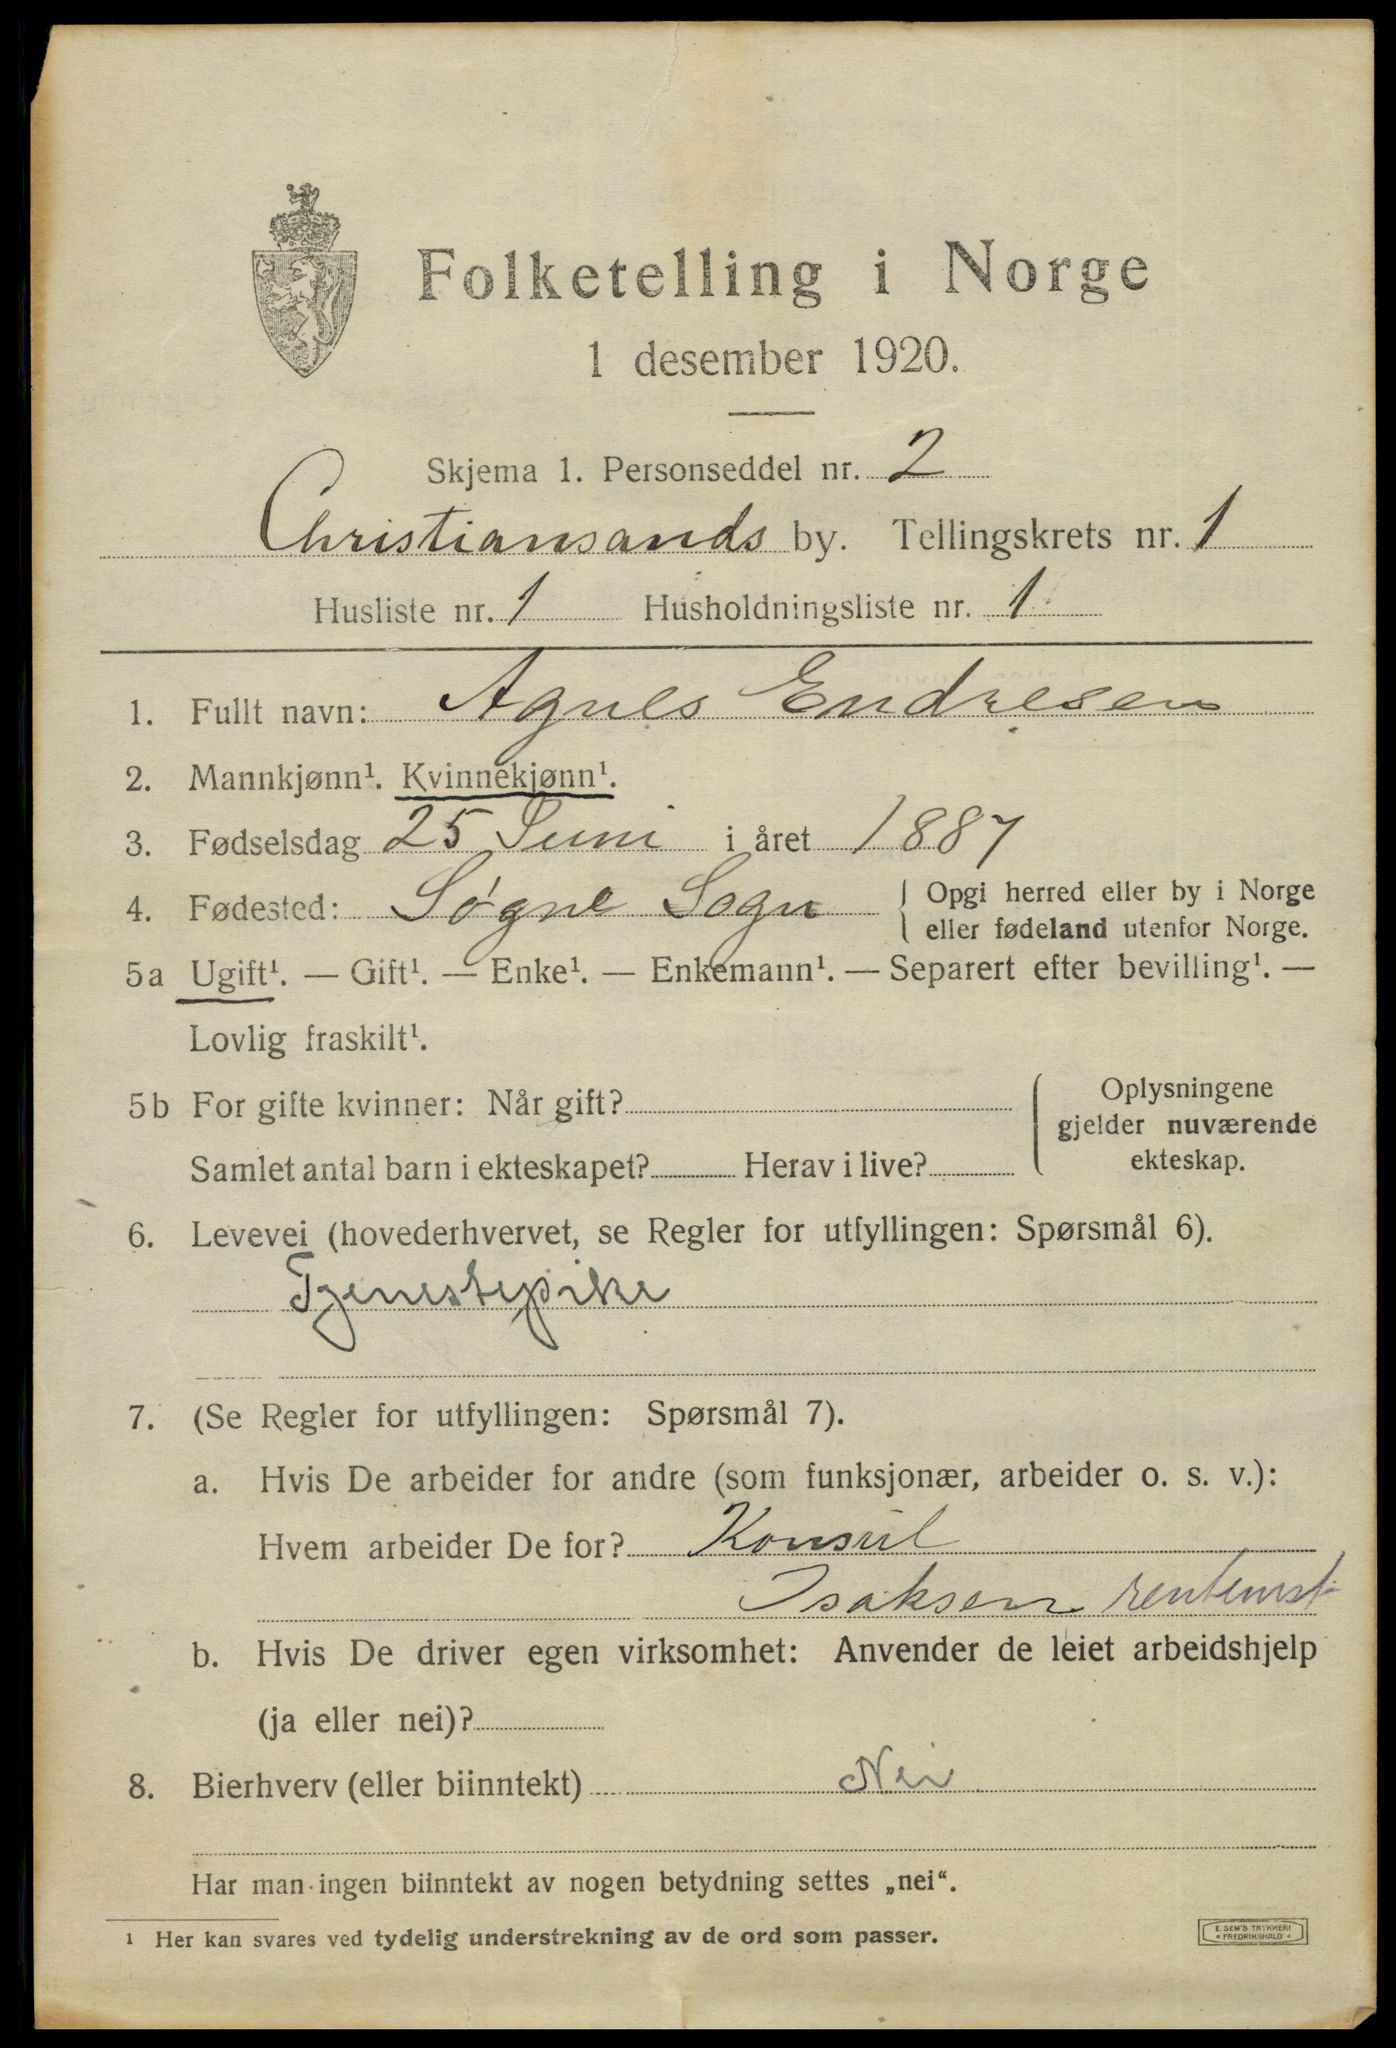 Folketelling i Norge
1 desember 1920.
Skjema 1. Personseddel nr. 2
Christiansands by. Tellingskrets nr. 1
Husliste nr. 1 Husholdningsliste nr. 1
1. Fullt navn: Agnes Endresen
2. Mannkjønn¹. Kvinnekjønn¹.
3. Fødselsdag 25 Juni i året 1887
4. Fødested: Søgne Sogn { Opgi herred eller by i Norge
eller fødeland utenfor Norge.
5a Ugift¹. — Gift¹. — Enke¹. — Enkemann¹. — Separert efter bevilling¹. —
Lovlig fraskilt¹.
5b For gifte kvinner: Når gift?
Samlet antal barn i ekteskapet? Herav i live?
{ Oplysningene
gjelder nuværende
ekteskap.
6. Levevei (hovederhvervet, se Regler for utfyllingen: Spørsmål 6).
Tjenestepike
7. (Se Regler for utfyllingen: Spørsmål 7).
a. Hvis De arbeider for andre (som funksjonær, arbeider o. s. v.):
Hvem arbeider De for? Konsul
Isaksen rentenist
b. Hvis De driver egen virksomhet: Anvender de leiet arbeidshjelp
(ja eller nei)?
8. Bierhverv (eller biinntekt) Nei
Har man ingen biinntekt av nogen betydning settes „nei“.
¹ Her kan svares ved tydelig understrekning av de ord som passer.
E. SEM'S TRYKKERI
• FREDRIKSHALD •